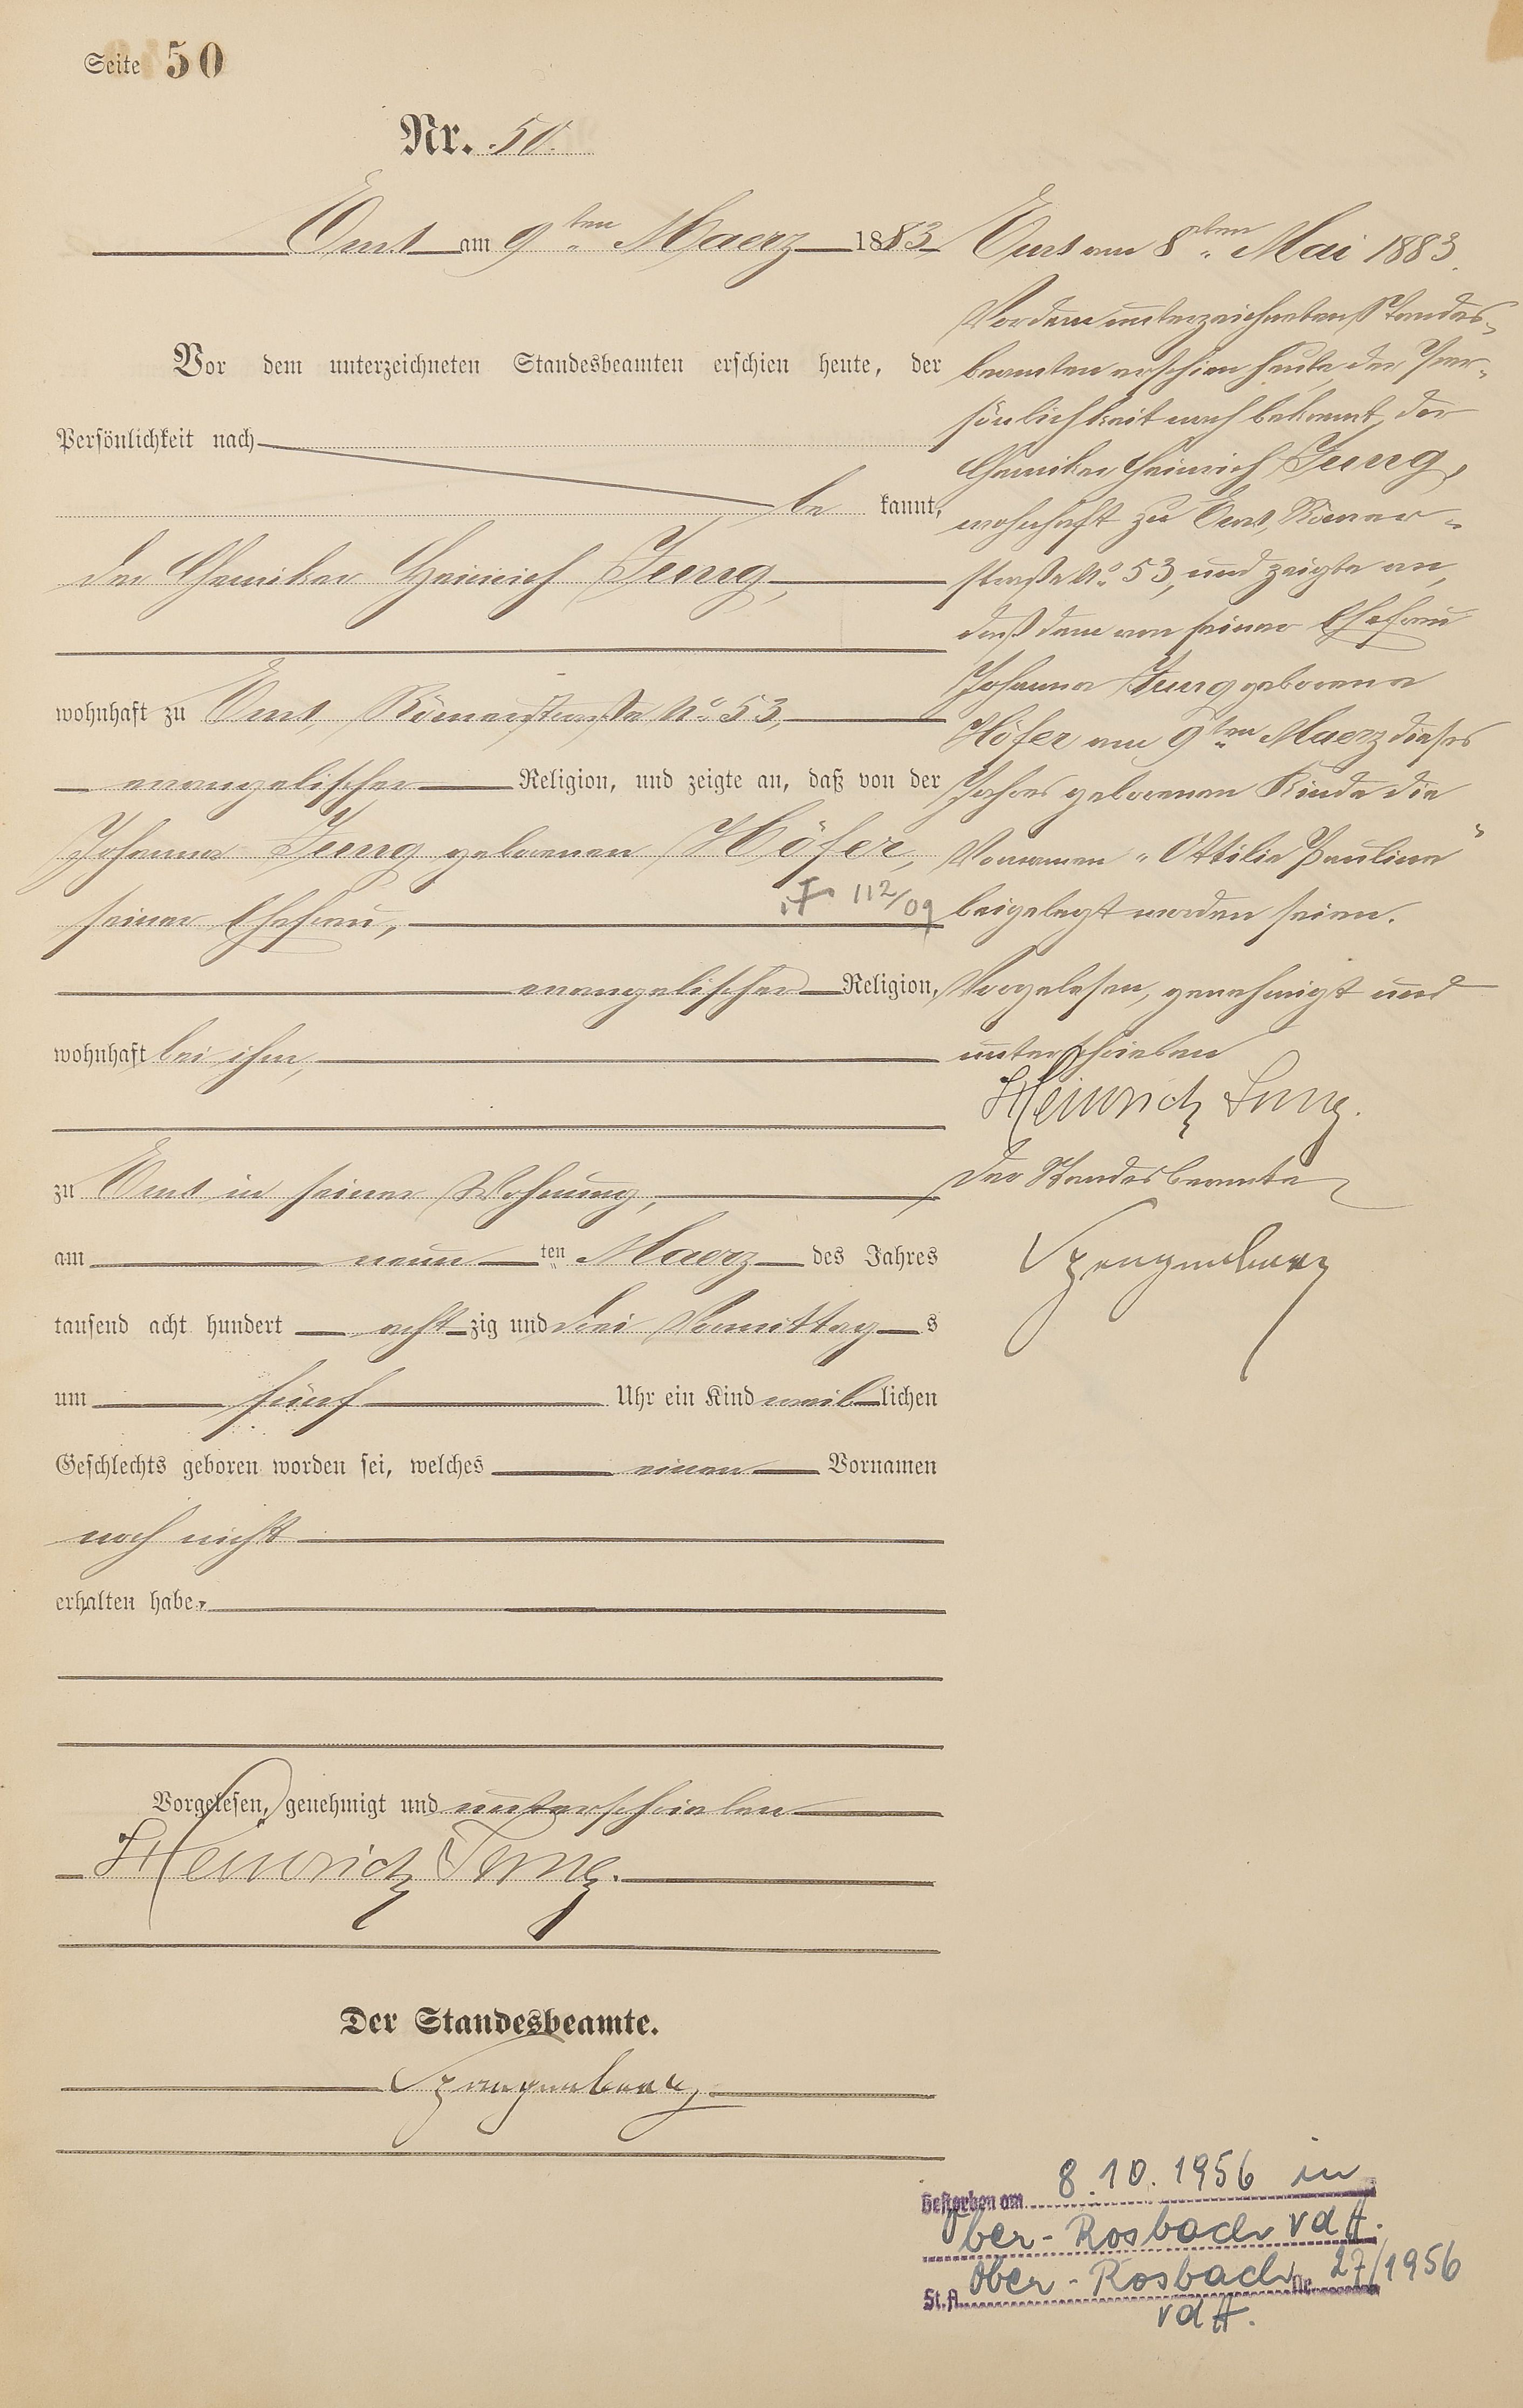 Seite 50
Nr. 50.
Ems am 9ten Maerz 1883
Vor dem unterzeichneten Standesbeamten erschien heute, der
Persönlichkeit nach
be kannt,
der Chemiker Heinrich Jung,
wohnhaft zu Ems, Römerstraße No 53,
evangelischer Religion, und zeigte an, daß von der
Johanna Jung geborenen Höfer,
seiner Ehefrau,
† 112/09
evangelischer Religion,
wohnhaft bei ihm,
zu Ems in seiner Wohnung,
am neun ten Maerz des Jahres
tausend acht hundert acht zig und drei Vormittag s
um fünf Uhr ein Kind weib lichen
Geschlechts geboren worden sei, welches einen Vornamen
noch nicht
erhalten habe.
Vorgelesen, genehmigt und unterschrieben
Heinrich Jung.
Der Standesbeamte.
Ems am 8ten Mai 1883.
Vor dem unterzeichneten Standes-
beamten erschien heute, der Per-
sönlichkeit nach bekannt, der
Chemiker Heinrich Jung,
wohnhaft zu Ems, Römer-
straße No 53, und zeigte an,
daß dem von seiner Ehefrau
Johanna Jung geborene
Höfer am 9ten Maerz dieses
Jahres geborenen Kinde die
Vornamen „Ottilie Pauline“
beigelegt worden seien.
Vorgelesen, genehmigt und
unterschrieben
Heinrich Jung.
Der Standesbeamte
Gestorben am 8.10.1956 in
Ober-Rosbach v d H.
St.A. Ober-Rosbach Nr. 27/1956
v d H.